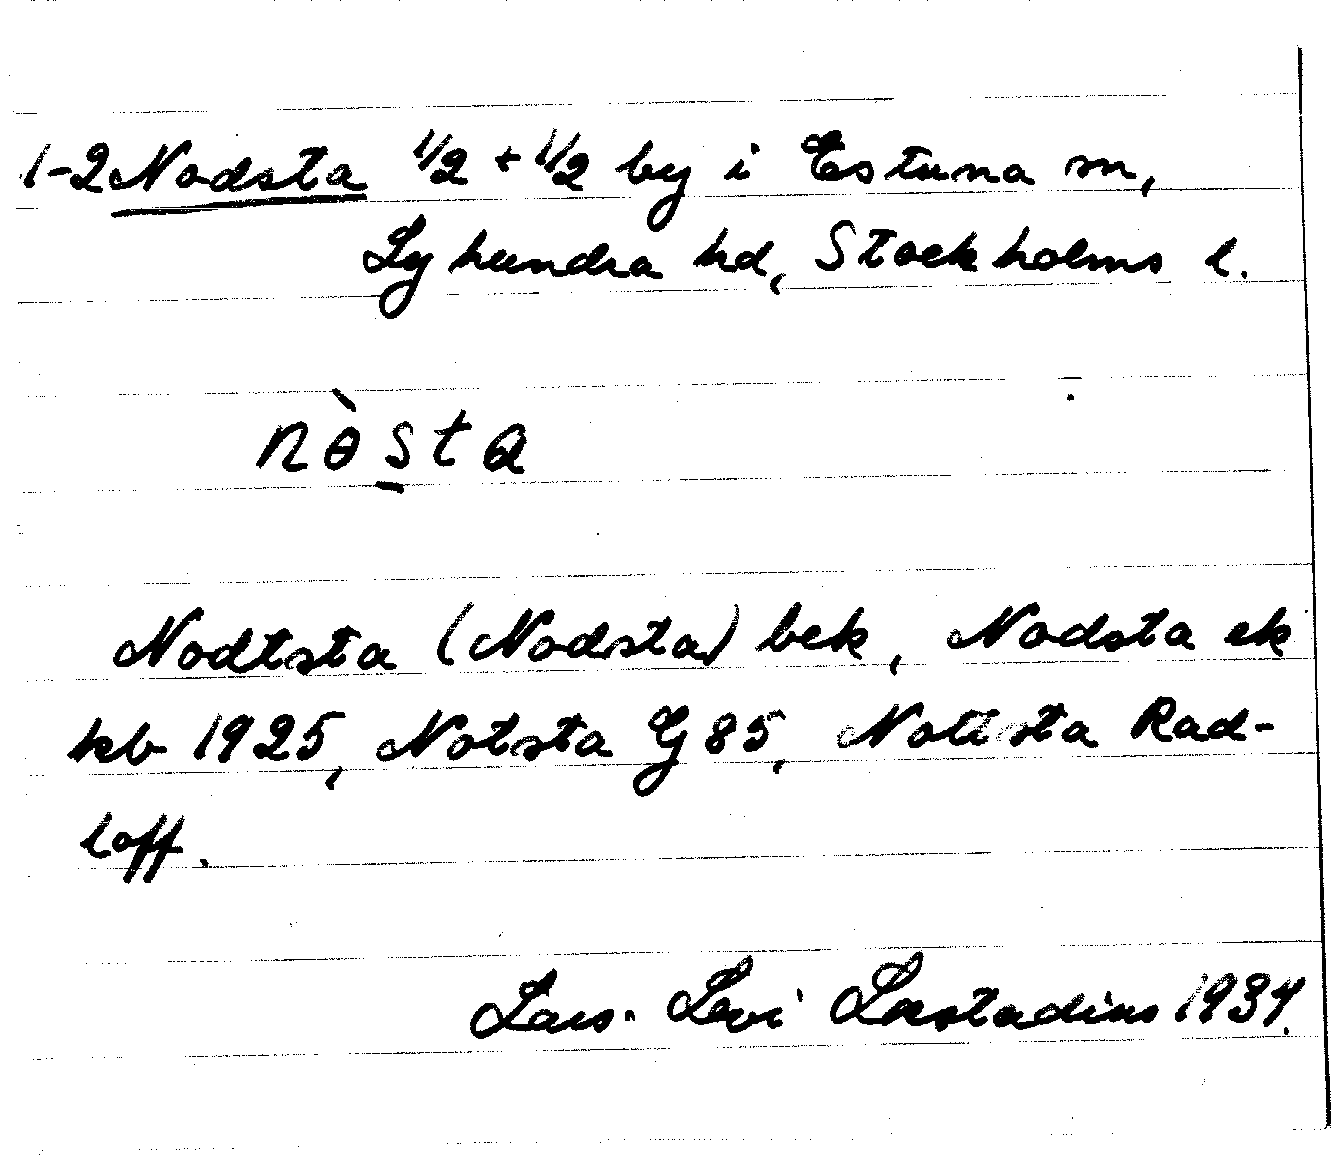 1-2 Nodsta 1/2 + 1/2 by i Estuna sn,
Lyhundra hd, Stockholms l.
nɵ̀s̱ta
Nodtsta (Nodsta) bek, Nodsta ek
kb 1925, Notsta G 85, Nottsta Rad-
loff.
Lars-Levi Læstadius 1934.